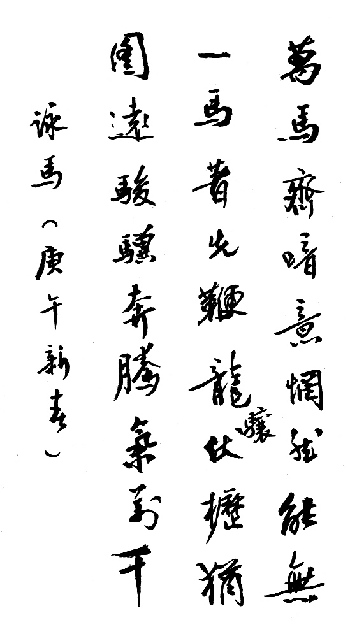 萬馬齊喑意惘然能無
一馬著先鞭龍驤伏櫪猶
圖遠駿驥奔騰氣萬千
詠馬（庚午新春）